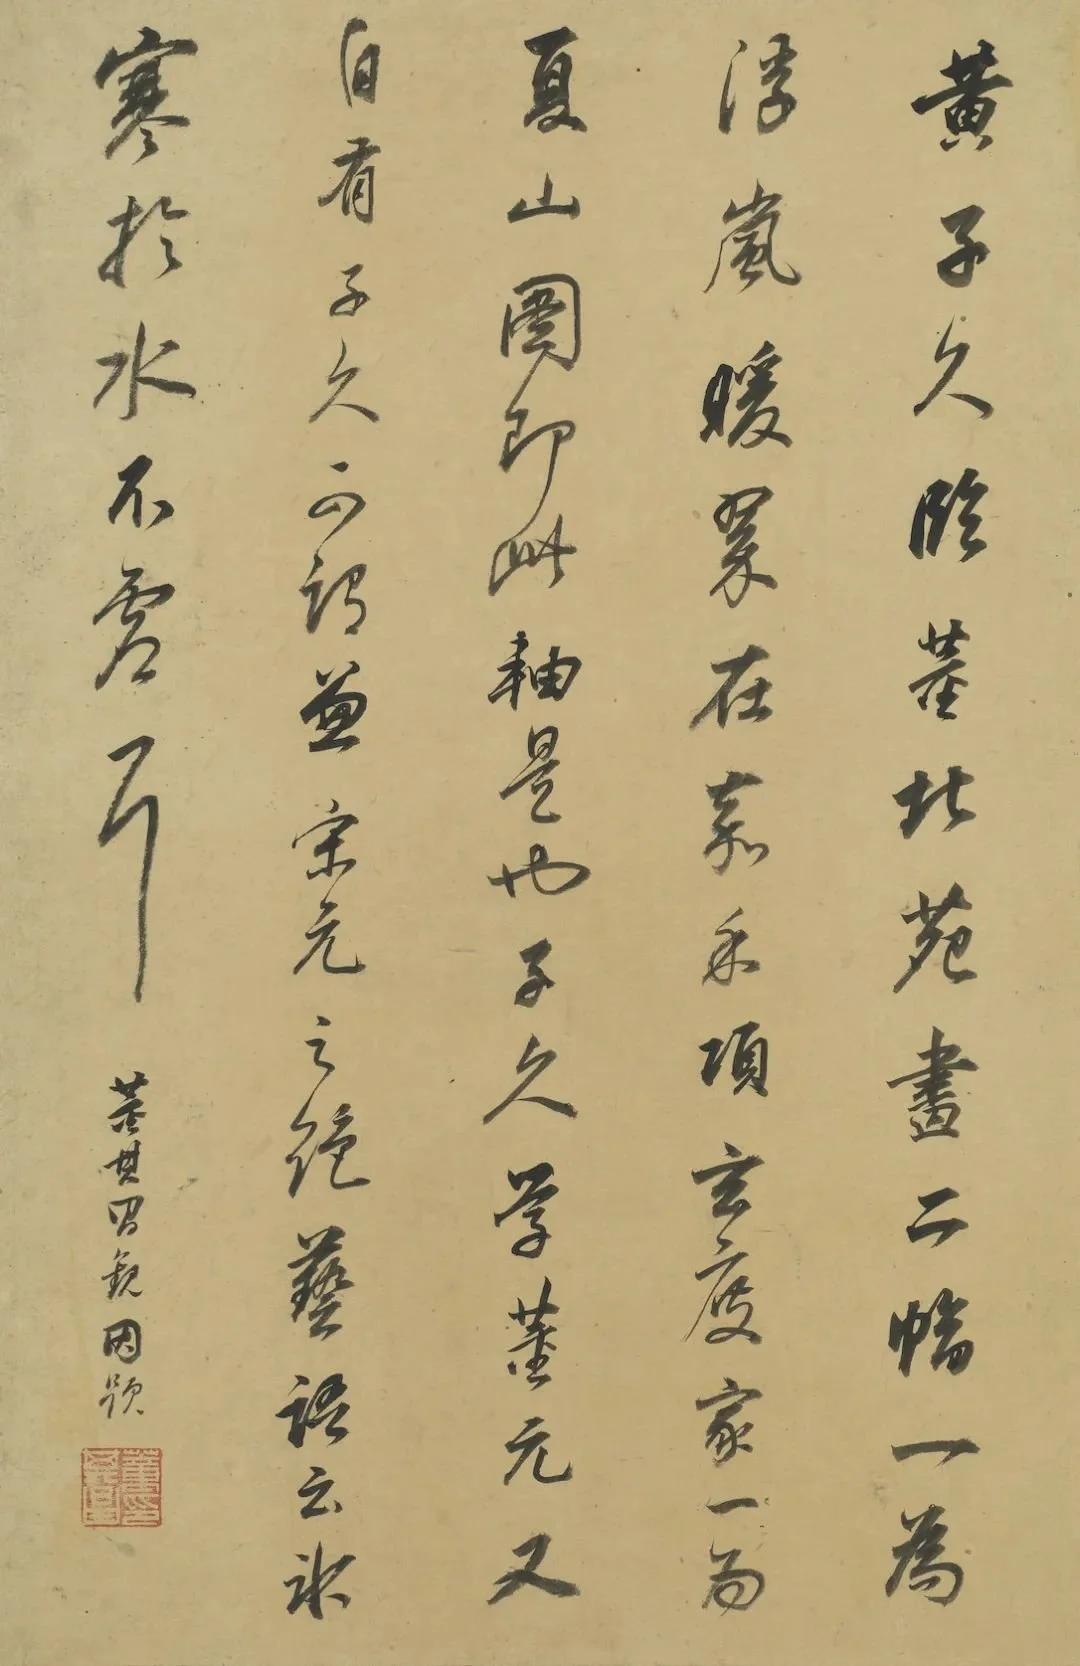 黃子久臨董北苑畫二幅一為
浮嵐暖翠在嘉禾項玄度家一為
夏山圖即此軸是也子久學董元又
自有子久可謂兼宋元之絕藝語云冰
寒於水不虛耳
董其昌觀因題